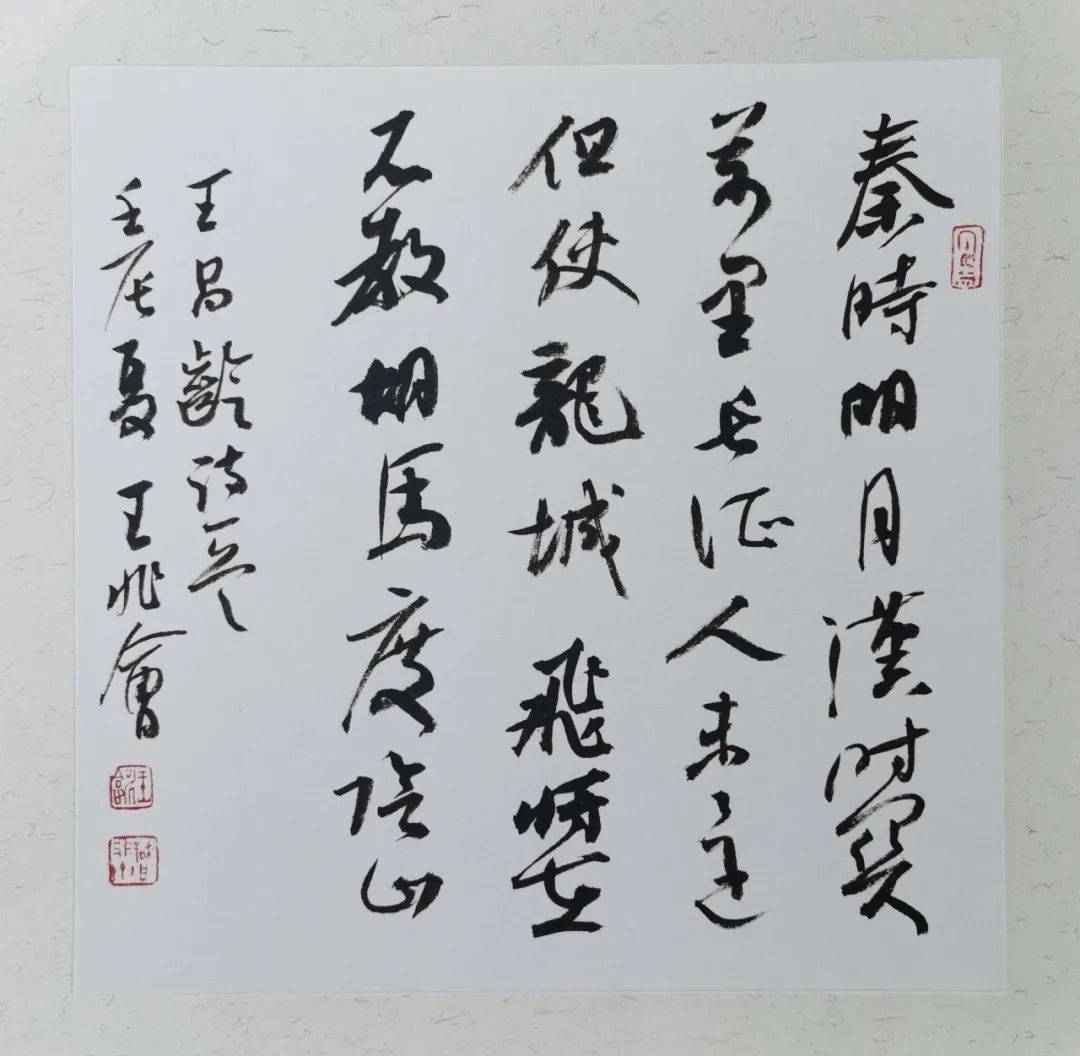 秦時明月漢时関
萬里长征人未還
但使龍城飛將在
不教胡馬度陰山
王昌齡诗一首
壬辰夏王兆會